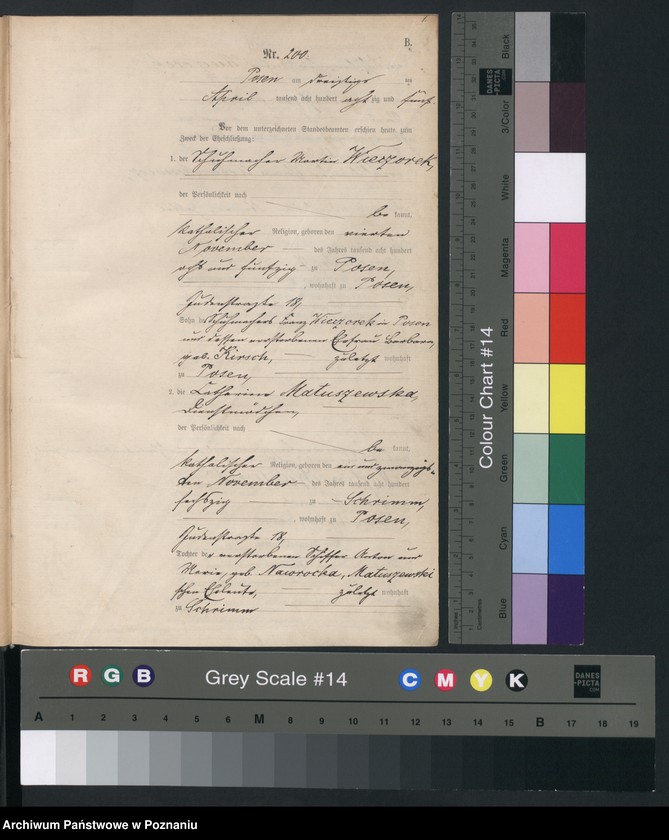 B.
Nr. 200
Posen am dreißigsten
April tausend acht hundert achtzig und fünf.
Vor dem unterzeichneten Standesbeamten erschien heute zum
Zweck der Eheschließung:
1. der Schuhmacher Martin Wieczorek,
der Persönlichkeit nach
be kannt,
katholischer Religion, geboren den vierten
November des Jahres tausend acht hundert
acht und funfzig zu Posen,
, wohnhaft zu Posen,
Judenstraße 18,
Sohn des Schuhmachers Franz Wieczorek in Posen
und dessen verstorbenen Ehefrau Barbara,
geb. Kirsch, zuletzt wohnhaft
zu Posen,
2. die Catharina Matuszewska,
Dienstmädchen,
der Persönlichkeit nach
be kannt,
katholischer Religion, geboren den ein und zwanzigs-
ten November des Jahres tausend acht hundert
sechszig zu Schrimm,
, wohnhaft zu Posen,
Judenstraße 18,
Tochter der verstorbenen Schiffer Anton und
Marie, geb. Nawrocka, Matuszewski
schen Eheleute, zuletzt wohnhaft
zu Schrimm
Colour Chart #14
Black
3/Color
White
Magenta
Red
Yellow
Green
Cyan
Blue
Centimetres
DANES
-PICTA
.COM
R G B Grey Scale #14 C M Y K
DANES
-PICTA
.COM
A 1 2 3 4 5 6 M 8 9 10 11 12 13 14 15 B 17 18 19
Archiwum Państwowe w Poznaniu